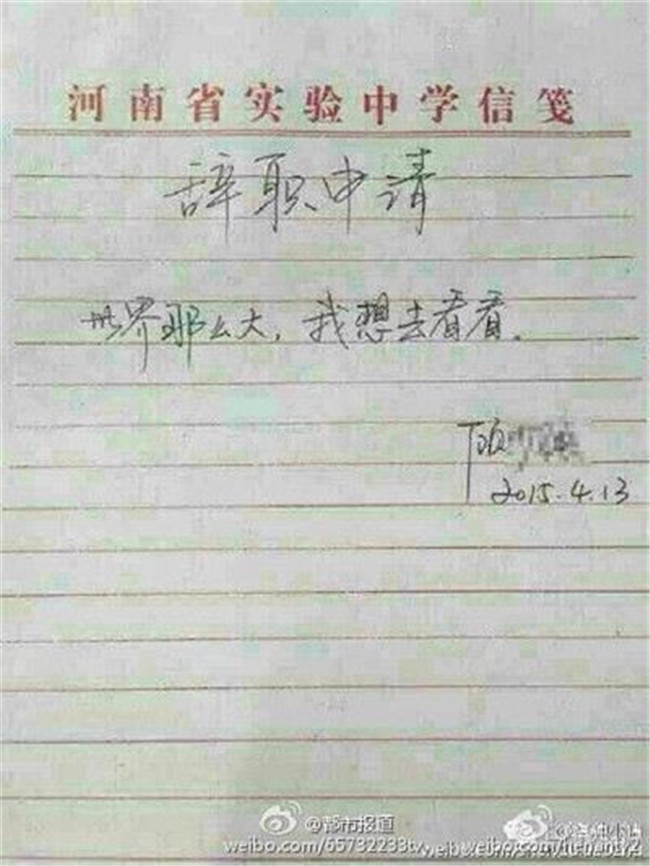 河南省实验中学信笺
辞职申请
世界那么大，我想去看看。
2015.4.13
@都市报道
weibo.com/65732233